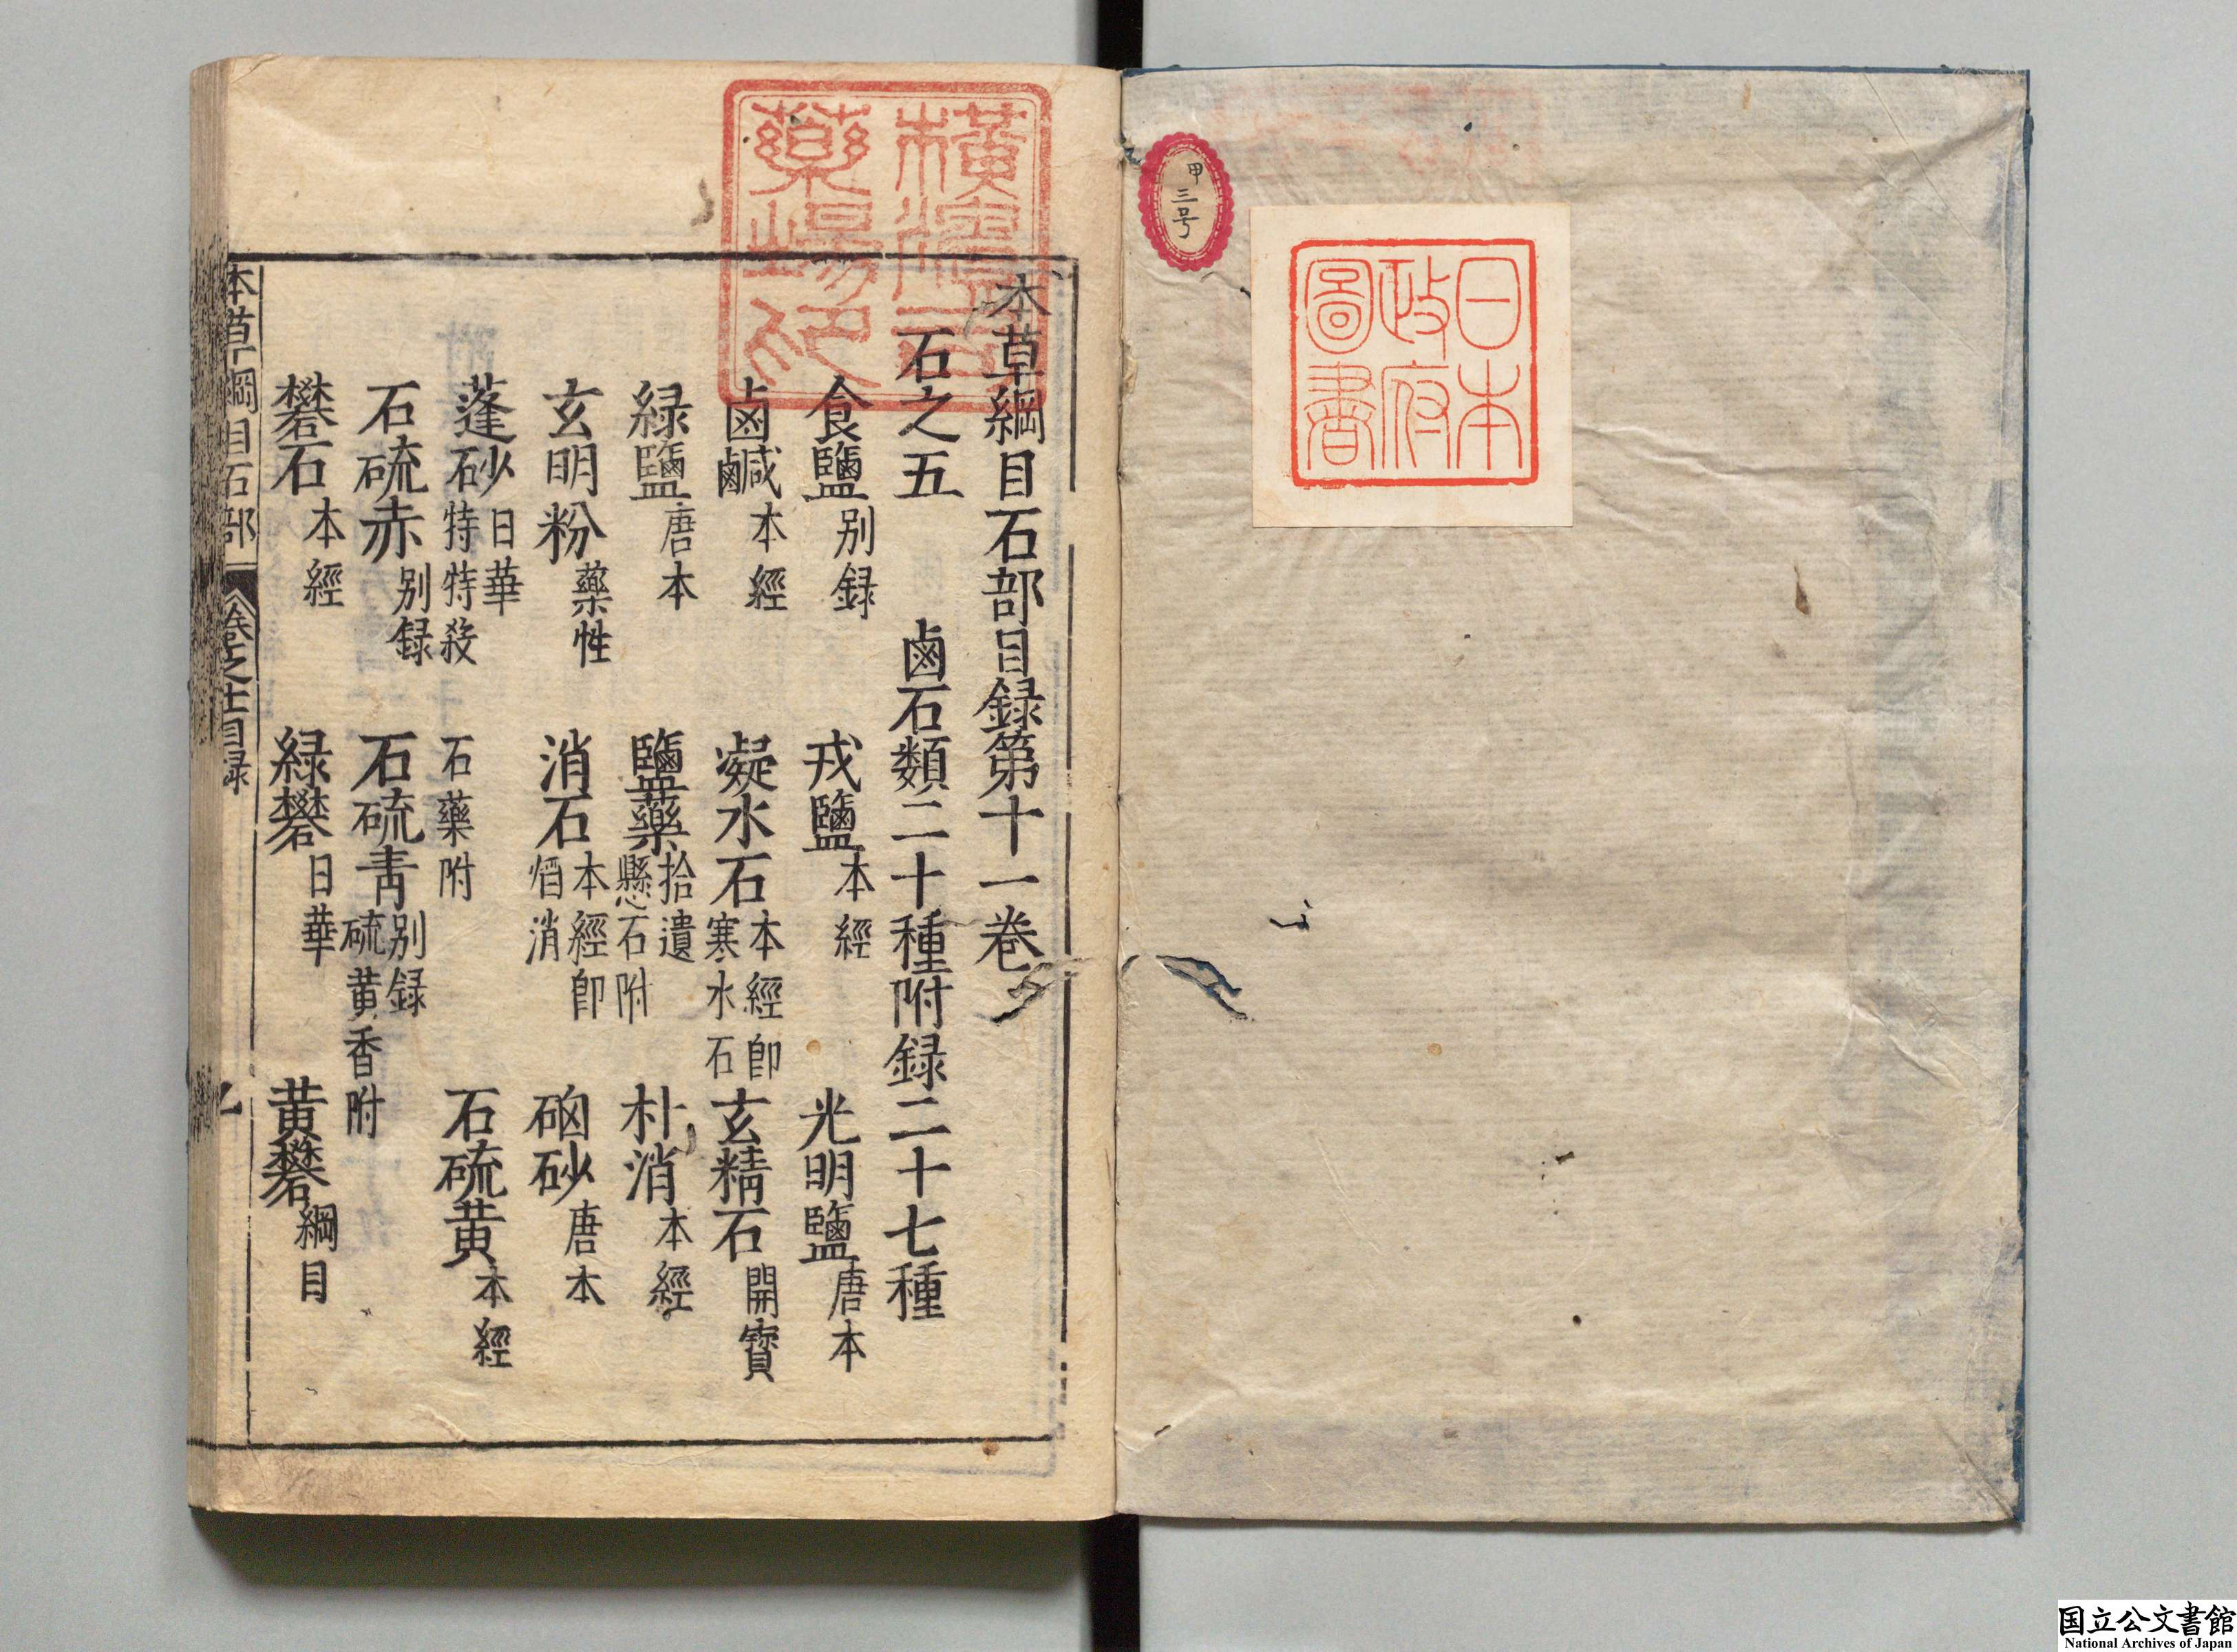 甲三号
日本
政府
圖書
本草綱目石部目録第十一卷
石之五　鹵石類二十種附録二十七種
食鹽 别録　戎鹽 本經　光明鹽 唐本
鹵鹹 本經　凝水石 本經即寒水石　玄精石 開寶
緑鹽 唐本　鹽藥 拾遺懸石附　朴消 本經
玄明粉 藥性　消石 本經即焰消　硇砂 唐本
蓬砂 日華特特殺　石藥附　石硫黄 本經
石硫赤 别録　石硫青 别録硫黄香附
礬石 本經　緑礬 日華　黄礬 綱目
本草綱目石部　卷之十一目録
国立公文書館
National Archives of Japan